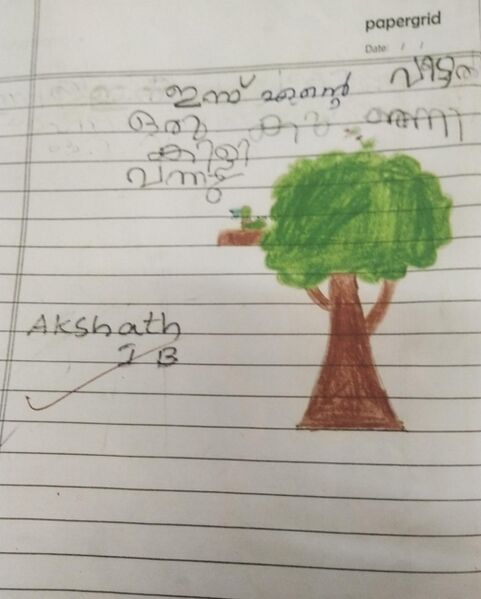 papergrid
Date: / /
ഇന്ന് എന്റെ വീട്ടിൽ
ഒരു
കിളി
വന്നു
Akshath
I B